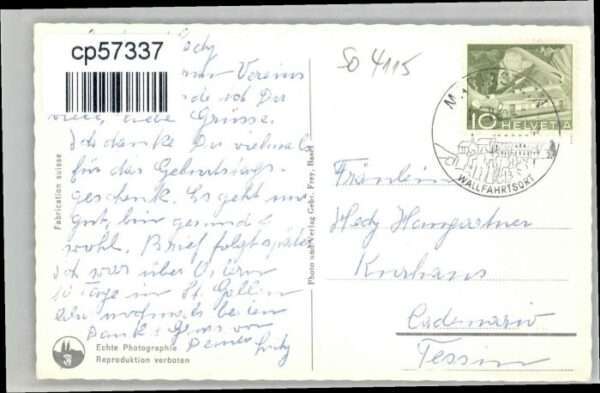 cp57337
So 4115
Hedy
Vereins
Dir
viele, liebe Grüsse.
Ich danke Dir vielmals
für das Geburtstags-
geschenk. Es geht mir
gut, bin gesund &
wohl. Brief folgt später
Ich war über Ostern
10 Tage in St. Gallen
nochmals
Dank & Gruss von
Deiner
Fabrication suisse
Echte Photographie
Reproduktion verboten
Photo und Verlag Gebr. Frey, Basel
10 HELVETIA
WALLFAHRTSORT
Fräulein
Hedy Homgartner
Kurhaus
Cademario
Tessin